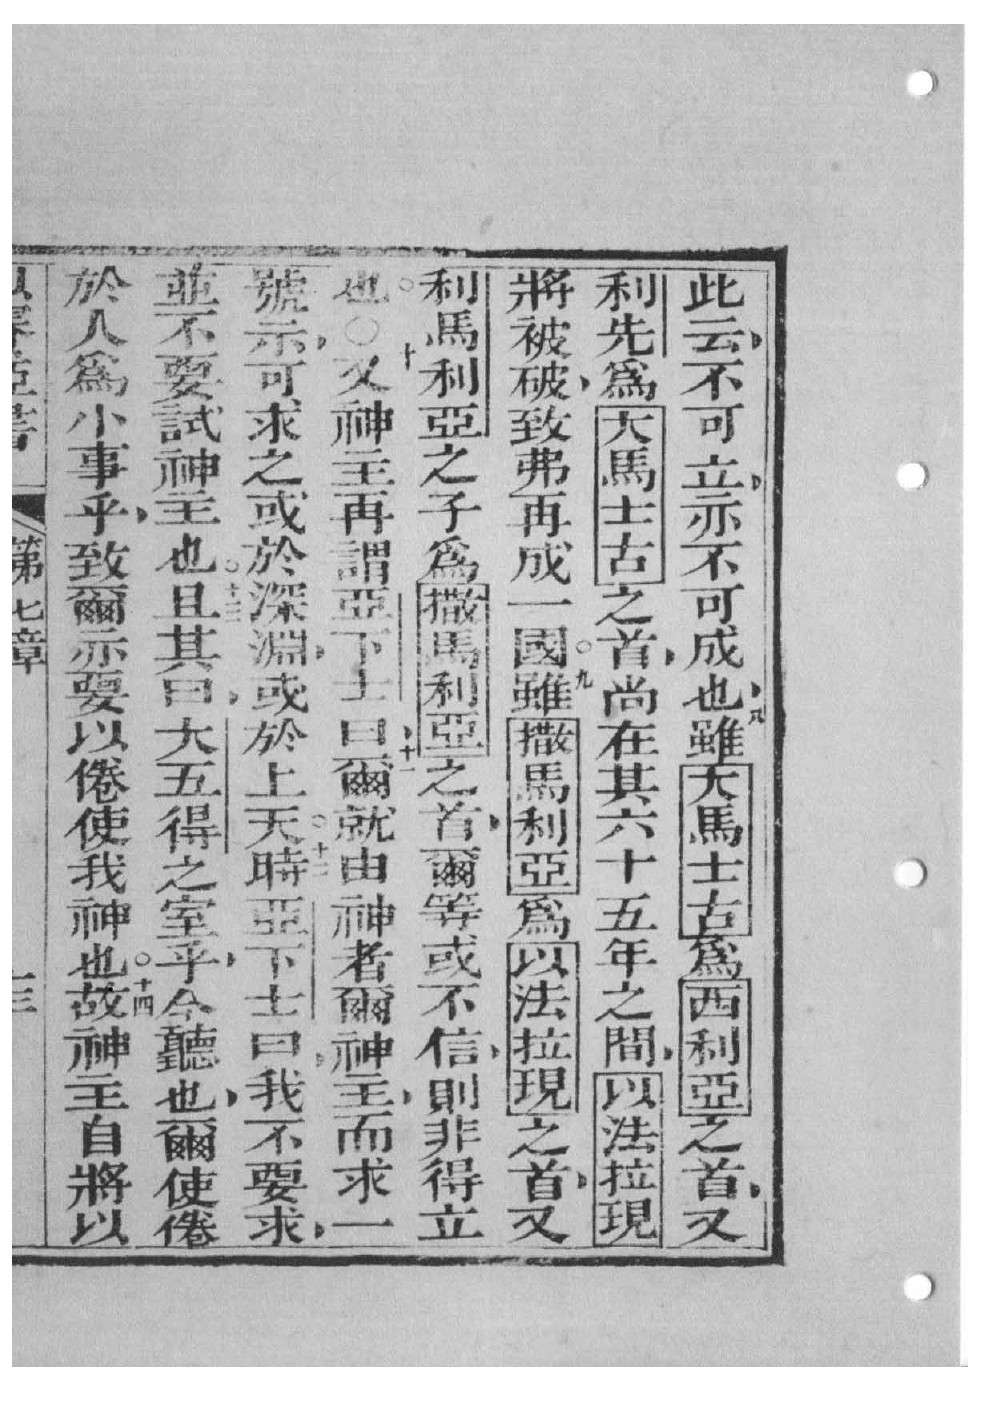 此云不可立亦不可成也八雖大馬士古爲西利亞之首又
利先爲大馬士古之首尚在其六十五年之間以法拉現
將被破致弗再成一國○九雖撒馬利亞爲以法拉現之首又
利馬利亞之子爲撒馬利亞之首爾等或不信則非得立
也○○十又神主再謂亞下士曰十一爾就由神者爾神主而求一
號示可求之或於深淵或於上天○十二時亞下士曰我不要求
並不要試神主也○十三且其曰大五得之室乎今聽也爾使倦
於人爲小事乎致爾亦要以倦使我神也○十四故神主自將以
第七章